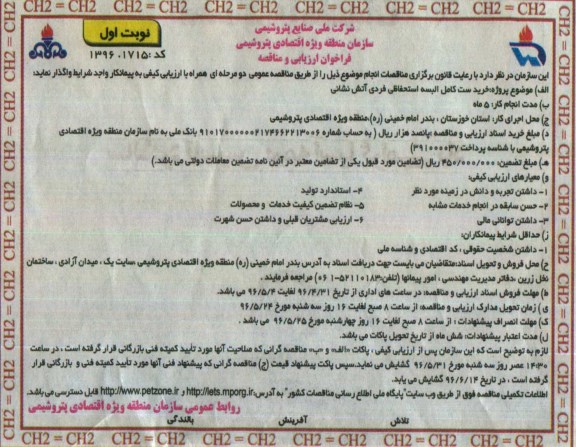 CH2 = CH2 CH2 = CH2 CH2 = CH2 CH2 = CH2 CH2 = CH2
شرکت ملی صنایع پتروشیمی
سازمان منطقه ویژه اقتصادی پتروشیمی
فراخوان ارزیابی و مناقصه
نوبت اول
کد :۱۳۹۶.۱۷۱۵
این سازمان در نظر دارد با رعایت قانون برگزاری مناقصات انجام موضوع ذیل را از طریق مناقصه عمومی دو مرحله ای همراه با ارزیابی کیفی به پیمانکار واجد شرایط واگذار نماید:
الف) موضوع پروژه:خرید ست کامل البسه استحفاظی فردی آتش نشانی
ب) مدت انجام کار: ۵ ماه
ج) محل اجرای کار: استان خوزستان ، بندر امام خمینی (ره)،منطقه ویژه اقتصادی پتروشیمی
د) مبلغ خرید اسناد ارزیابی و مناقصه: پانصد هزار ریال ( به حساب شماره ۹۱۰۱۷۰۰۰۰۰۰۴۱۷۴۶۶۲۲۱۳۰۰۶ بانک ملی به نام سازمان منطقه ویژه اقتصادی
پتروشیمی با شناسه پرداخت ۳۹۱۰۰۰۰۳۷)
هـ) مبلغ تضمین: ۴۵۰/۰۰۰/۰۰۰ ریال (تضامین مورد قبول یکی از تضامین معتبر در آئین نامه تضمین معاملات دولتی می باشد.)
و) معیارهای ارزیابی کیفی:
۱- داشتن تجربه و دانش در زمینه مورد نظر
۴- استاندارد تولید
۲- حسن سابقه در انجام خدمات مشابه
۵- نظام تضمین کیفیت خدمات و محصولات
۳- داشتن توانائی مالی
۶- ارزیابی مشتریان قبلی و داشتن حسن شهرت
ز) حداقل شرایط پیمانکاران:
۱- داشتن شخصیت حقوقی ، کد اقتصادی و شناسه ملی
ح) محل فروش و تحویل اسناد:متقاضیان می بایست جهت دریافت اسناد به آدرس بندر امام خمینی (ره) منطقه ویژه اقتصادی پتروشیمی ،سایت یک ، میدان آزادی ، ساختمان
نخل زرین ،دفاتر مدیریت مهندسی ، امور پیمانها (تلفن:۵۲۱۱۰۱۸۳-۰۶۱) مراجعه فرمایند .
ط) مهلت فروش اسناد ارزیابی و مناقصه: در ساعت های اداری از تاریخ ۹۶/۴/۳۱ لغایت ۹۶/۵/۴ می باشد.
ی) زمان تحویل مدارک ارزیابی و مناقصه: از ساعت ۸ صبح لغایت ۱۶ روز سه شنبه مورخ ۹۶/۵/۲۴
ک) مهلت انصراف پیشنهادات : از ساعت ۸ صبح لغایت ۱۶ روز چهارشنبه مورخ ۹۶/۵/۲۵ می باشد .
ل) مدت اعتبار پیشنهادات: شش ماه از تاریخ تحویل پاکات می باشد.
لازم به توضیح است که این سازمان پس از ارزیابی کیفی ، پاکات «الف» و «ب» مناقصه گرانی که صلاحیت آنها مورد تأیید کمیته فنی بازرگانی قرار گرفته است ، در ساعت
۱۴:۳۰ عصر روز سه شنبه مورخ ۹۶/۵/۳۱ گشایش می نماید.سپس پاکت پیشنهاد قیمت (ج) مناقصه گرانی که پیشنهاد فنی آنها مورد تأیید کمیته فنی و بازرگانی قرار
گرفته است ، در تاریخ ۹۶/۶/۱۴ گشایش می یابد.
اطلاعات تکمیلی مناقصه فوق از طریق وب سایت"پایگاه ملی اطلاع رسانی مناقصات کشور" به آدرس:http://iets.mporg.ir و http://www.petzone.ir قابل دسترسی می باشد.
تلاش آفرینش بالندگی
روابط عمومی سازمان منطقه ویژه اقتصادی پتروشیمی
CH2 = CH2 CH2 = CH2 CH2 = CH2 CH2 = CH2 CH2 = CH2